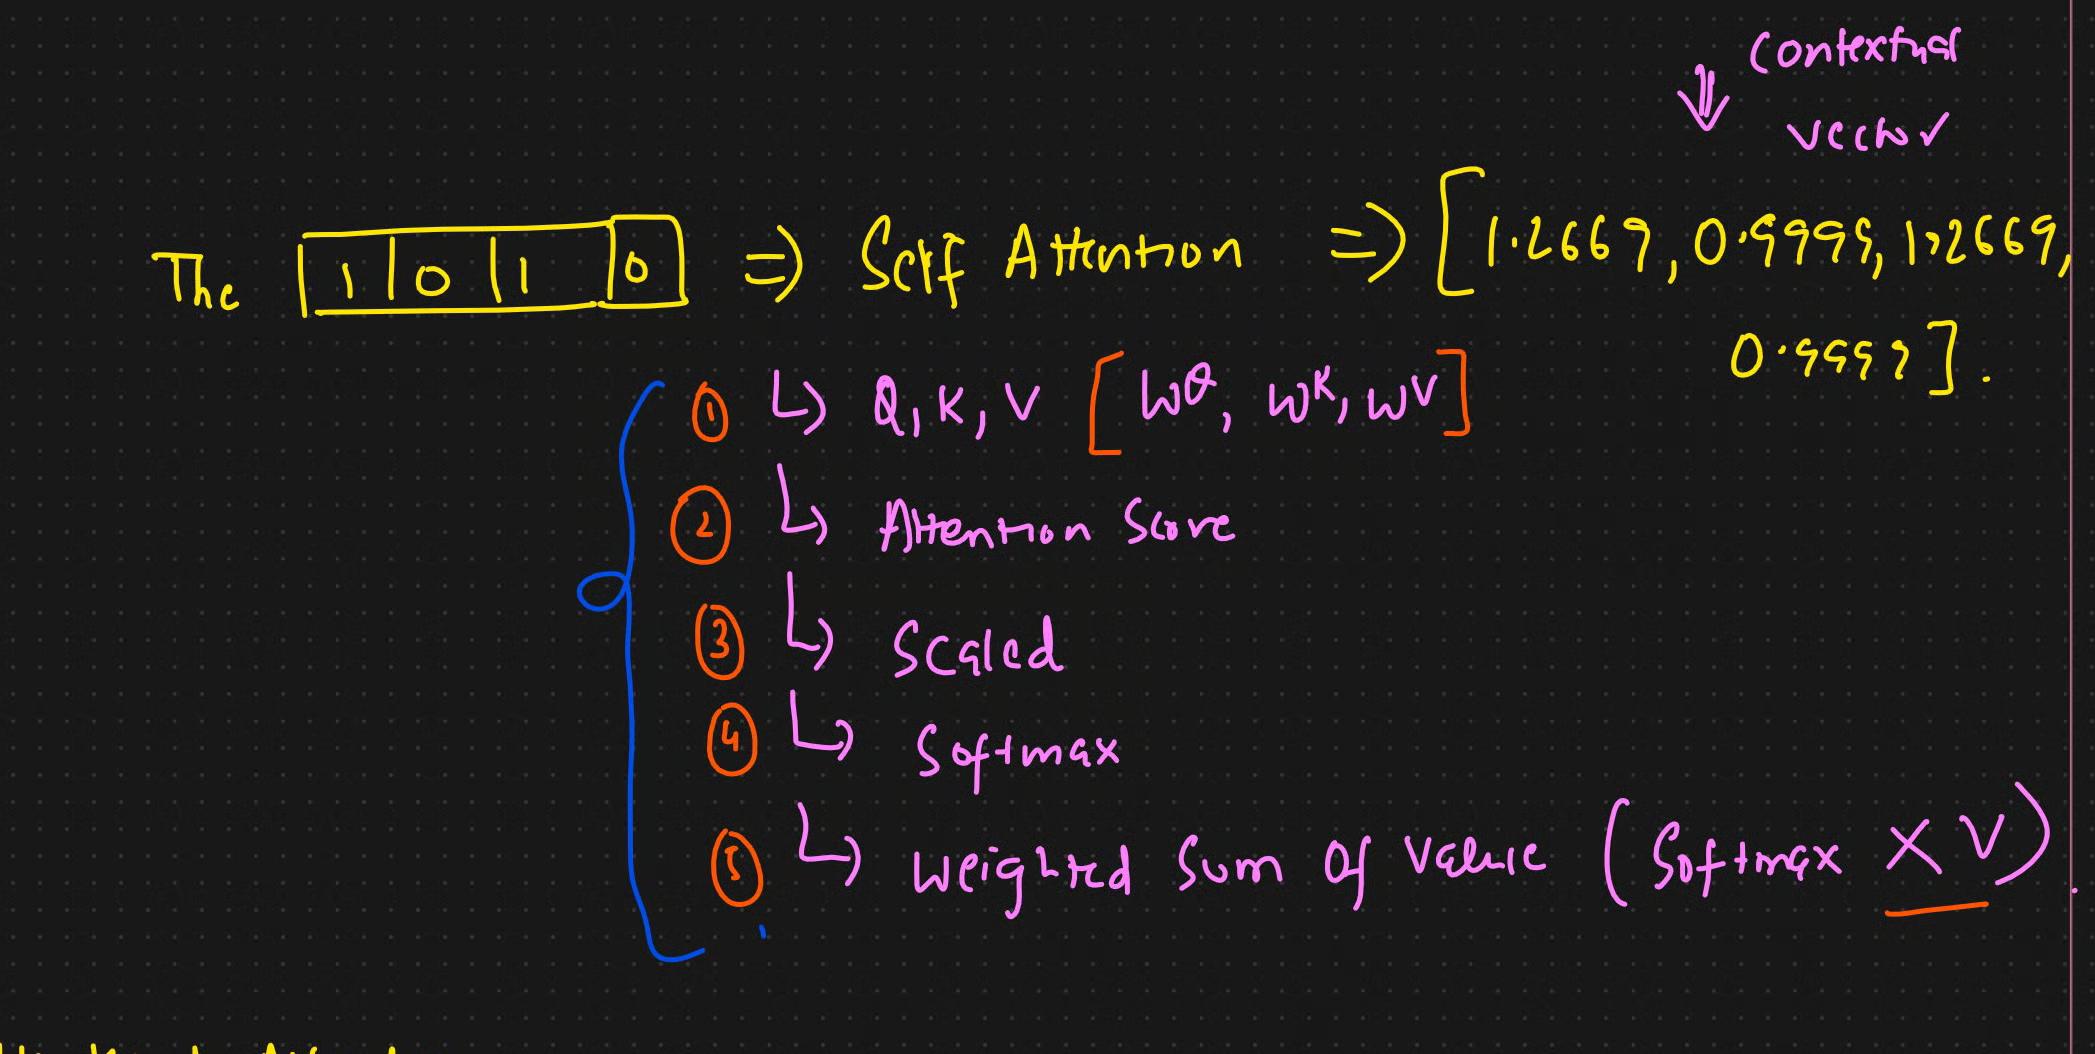 Contextual
⇓ vector
The 1 0 1 0 => Self Attention => [1.2669, 0.9999, 1.2669,
0.9999].
① ↳ Q, K, V [W^Q, W^K, W^V]
② ↳ Attention Score
③ ↳ Scaled
④ ↳ Softmax
⑤ ↳ Weighted Sum of Value (Softmax X V).